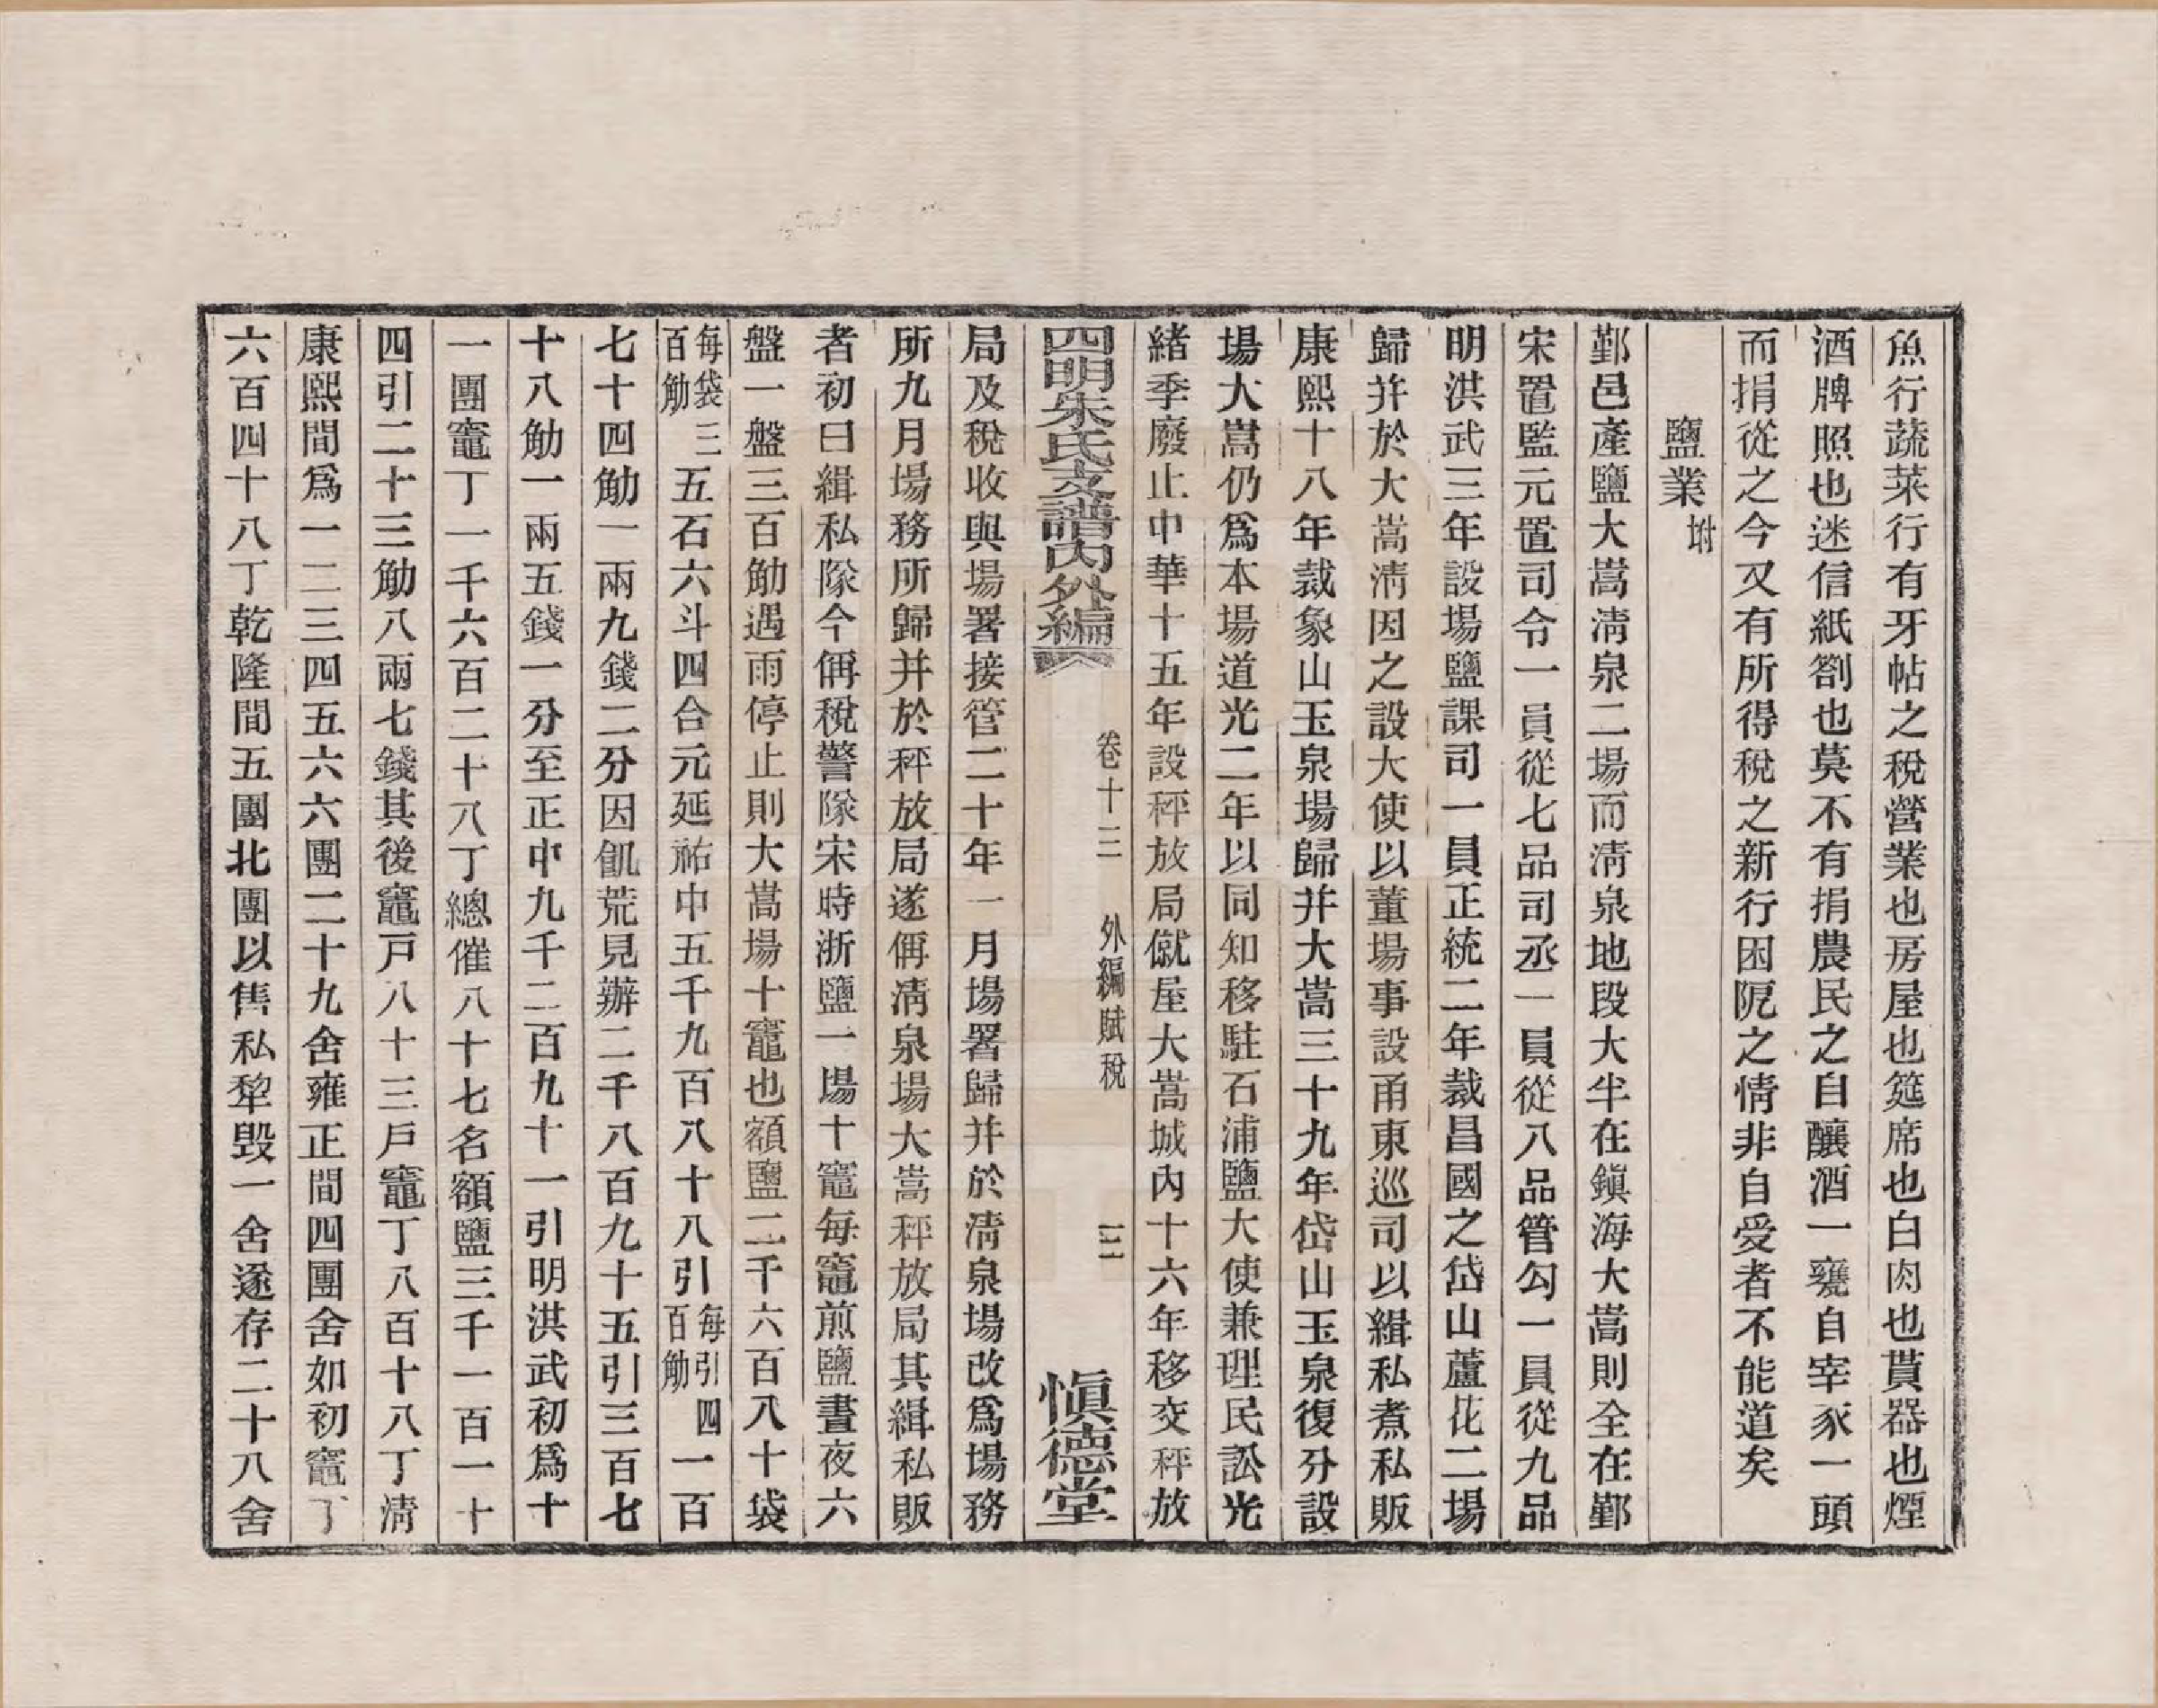 魚行蔬菜行有牙帖之稅營業也房屋也筵席也白肉也貰器也煙
酒牌照也迷信紙劄也莫不有捐農民之自釀酒一甕自宰豕一頭
而捐從之今又有所得稅之新行困阨之情非自受者不能道矣
鹽業坿
鄞邑產鹽大嵩淸泉二場而淸泉地段大半在鎭海大嵩則全在鄞
宋置監元置司令一員從七品司丞一員從八品管勾一員從九品
明洪武三年設場鹽課司一員正統二年裁昌國之岱山蘆花二場
歸并於大嵩淸因之設大使以董場事設甬東巡司以緝私煮私販
康熙十八年裁象山玉泉場歸并大嵩三十九年岱山玉泉復分設
場大嵩仍爲本場道光二年以同知移駐石浦鹽大使兼理民訟光
緖季廢止中華十五年設秤放局僦屋大嵩城內十六年移交秤放
四明朱氏支譜內外編 卷十三 外編賦稅 三 愼德堂
局及稅收與場署接管二十年一月場署歸并於淸泉場改爲場務
所九月場務所歸并於秤放局遂偁淸泉場大嵩秤放局其緝私販
者初曰緝私隊今偁稅警隊宋時浙鹽一場十竈每竈煎鹽晝夜六
盤一盤三百觔遇雨停止則大嵩場十竈也額鹽二千六百八十袋
每袋三百觔五石六斗四合元延祐中五千九百八十八引每引四百觔一百
七十四觔一兩九錢二分因飢荒見辦二千八百九十五引三百七
十八觔一兩五錢一分至正中九千二百九十一引明洪武初爲十
一團竈丁一千六百二十八丁總催八十七名額鹽三千一百一十
四引二十三觔八兩七錢其後竈戸八十三戸竈丁八百十八丁淸
康熙間爲一二三四五六六團二十九舍雍正間四團舍如初竈丁
六百四十八丁乾隆間五團北團以售私犂毁一舍遂存二十八舍